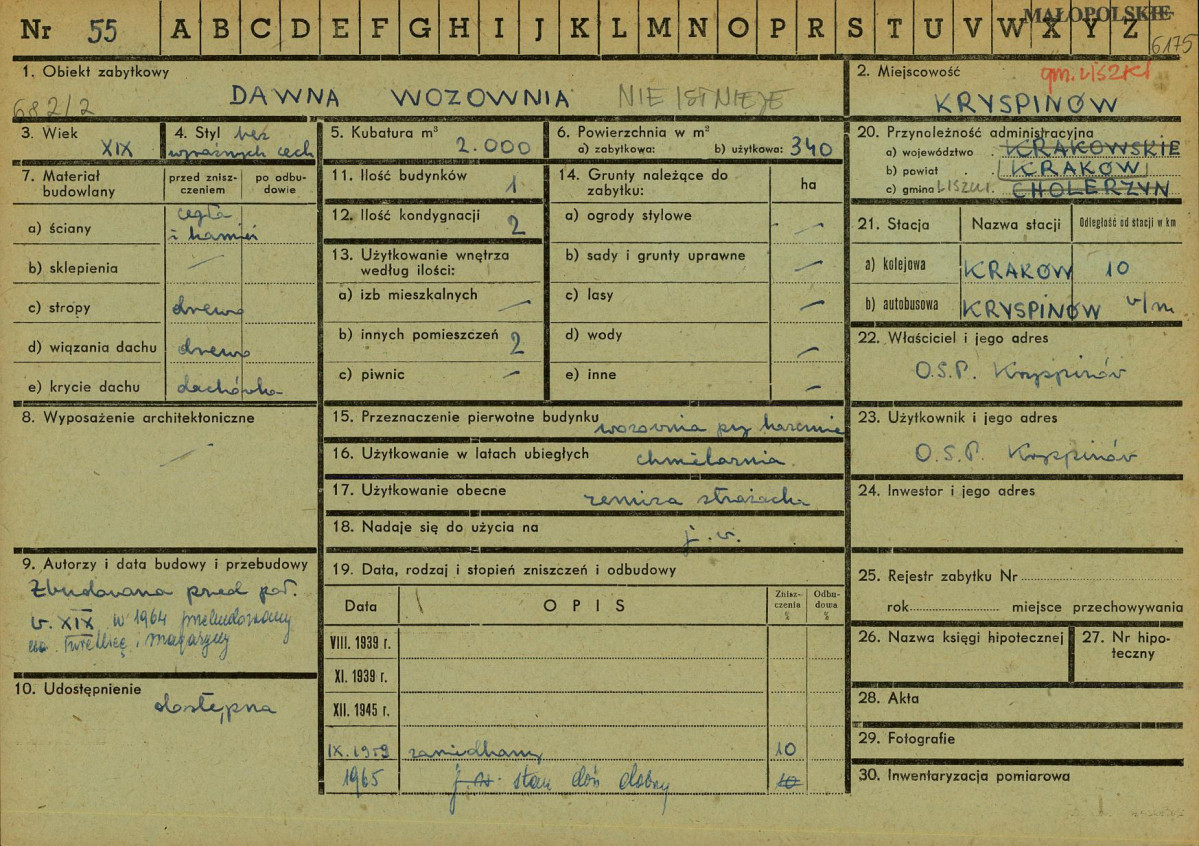 Nr 55 A B C D E F G H I J K L M N O P R S T U V W X Y Z
MAŁOPOLSKIE
6175
1. Obiekt zabytkowy
682/2
DAWNA WOZOWNIA NIE ISTNIEJE
2. Miejscowość
gm. LISZKI
KRYSPINÓW
3. Wiek
XIX
4. Styl bez
wyraźnych cech
5. Kubatura m³
2.000
6. Powierzchnia w m²
a) zabytkowa: b) użytkowa: 340
7. Materiał budowlany
przed zniszczeniem
po odbudowie
a) ściany cegła
i kamień
b) sklepienia —
c) stropy drewno
d) wiązania dachu drewno
e) krycie dachu dachówka
8. Wyposażenie architektoniczne
—
9. Autorzy i data budowy i przebudowy
Zbudowana przed poł.
w. XIX w 1964 przebudowany
na świetlicę i magazyny
10. Udostępnienie
dostępna
11. Ilość budynków 1
12. Ilość kondygnacji 2
13. Użytkowanie wnętrza
według ilości:
a) izb mieszkalnych —
b) innych pomieszczeń 2
c) piwnic —
14. Grunty należące do
zabytku:
ha
a) ogrody stylowe —
b) sady i grunty uprawne —
c) lasy —
d) wody —
e) inne —
15. Przeznaczenie pierwotne budynku wozownia przy
16. Użytkowanie w latach ubiegłych chmielarnia
17. Użytkowanie obecne remiza strażacka
18. Nadaje się do użycia na j. w.
19. Data, rodzaj i stopień zniszczeń i odbudowy
Data
OPIS
Zniszczenia %
Odbudowa %
VIII. 1939 r.
XI. 1939 r.
XII. 1945 r.
IX. 1959 zaniedbany 10
1965 j. w. stan dość dobry 10
20. Przynależność administracyjna
a) województwo KRAKOWSKIE
b) powiat KRAKÓW
c) gmina LISZKI. CHOLERZYN
21. Stacja
Nazwa stacji
Odległość od stacji w km
a) kolejowa KRAKÓW 10
b) autobusowa KRYSPINÓW w/m
22. Właściciel i jego adres
O.S.P. Kryspinów
23. Użytkownik i jego adres
O.S.P. Kryspinów
24. Inwestor i jego adres
25. Rejestr zabytku Nr
rok miejsce przechowywania
26. Nazwa księgi hipotecznej
27. Nr hipoteczny
28. Akta
29. Fotografie
30. Inwentaryzacja pomiarowa